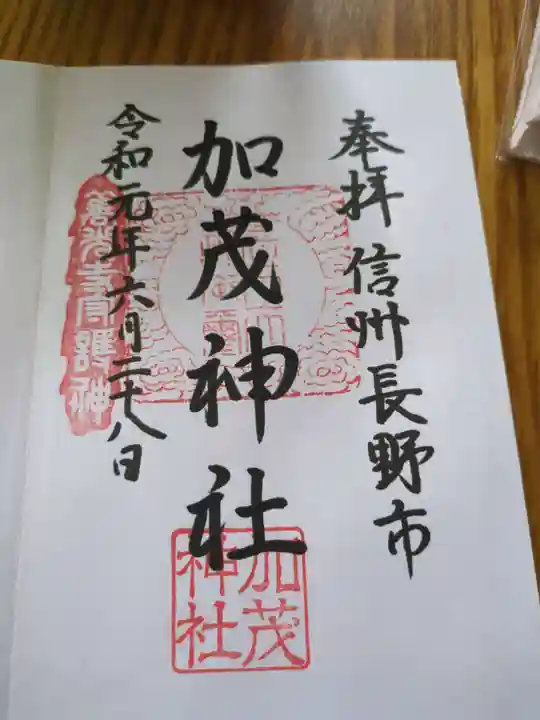 奉拝 信州長野市
加茂神社
令和元年六月二十八日
善光寺周護神
加茂
神社